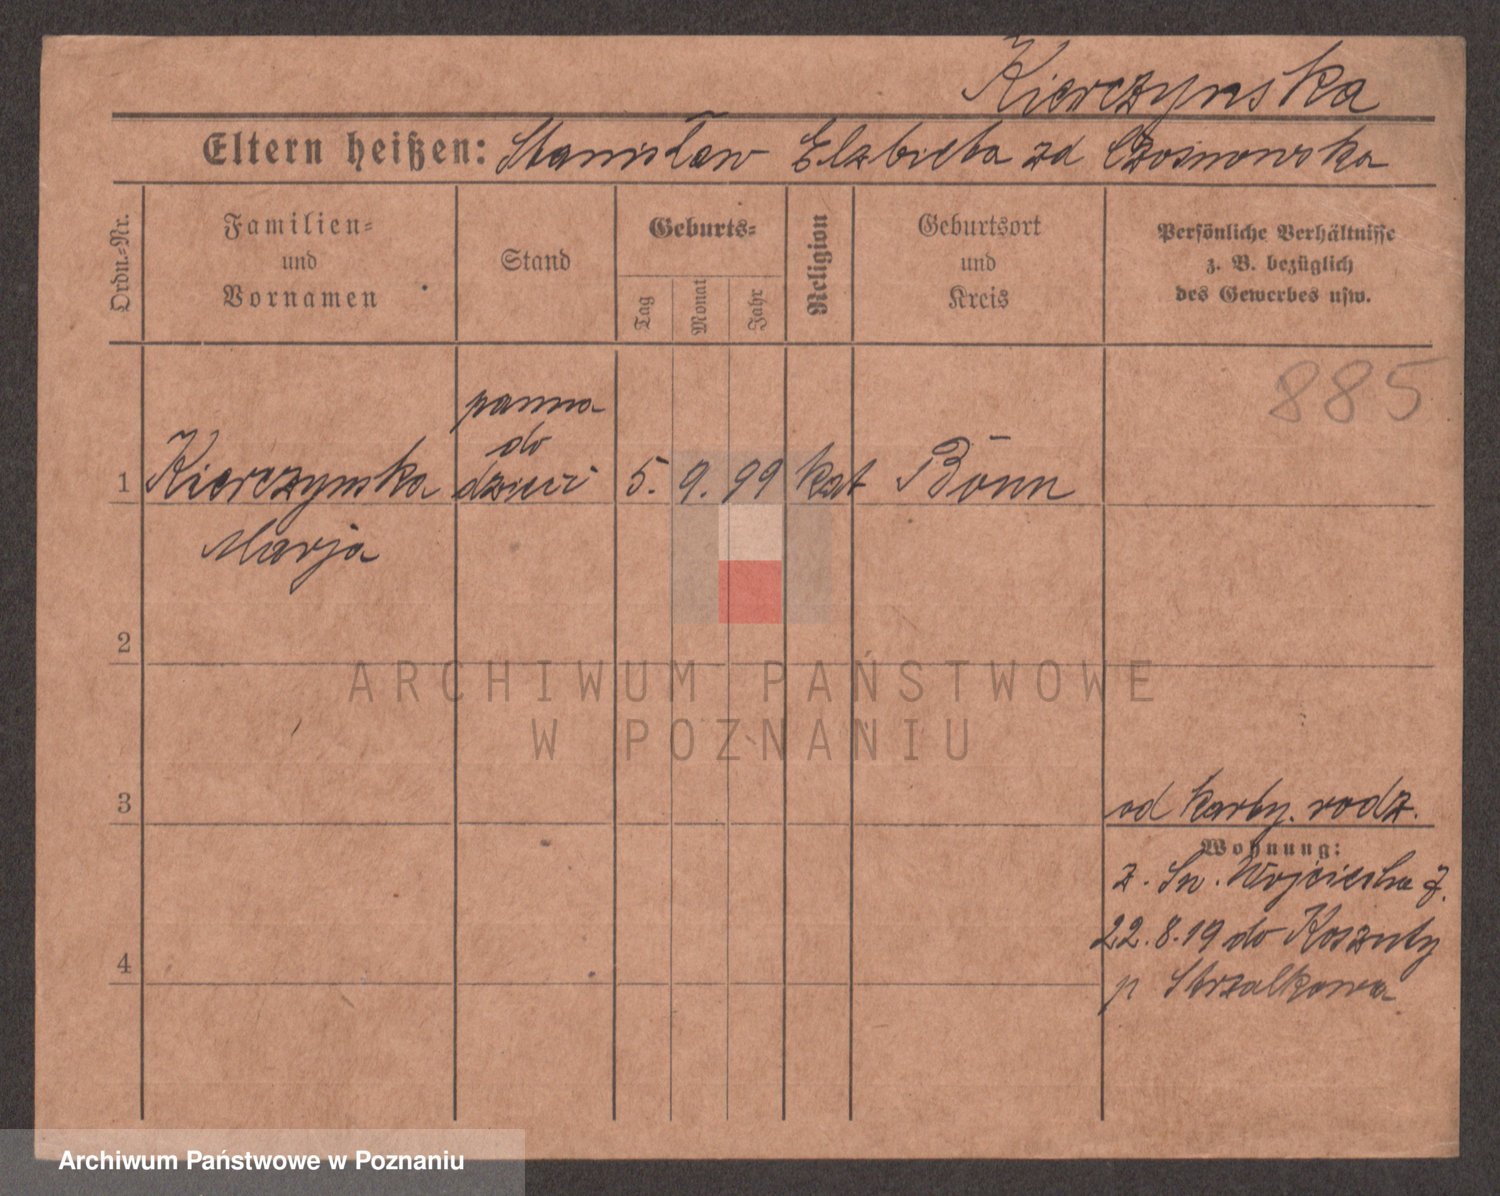 Kierczynska
Eltern heißen: Stanisław Elzbieta zd Czosnowska
Ordn.-Nr.
Familien-
und
Vornamen
Stand
Geburts-
Tag
Monat
Jahr
Religion
Geburtsort
und
Kreis
Persönliche Verhältnisse
z. B. bezüglich
des Gewerbes usw.
885
panna
do
1 Kierczynska dzieci 5. 9. 99 kat Bonn
Marja
2
ARCHIWUM PAŃSTWOWE
W POZNANIU
3
od karty. rodz.
Wohnung:
z. Św. Wojciecha 7.
22.8.19 do Koszuty
4
p Strzalkowa
Archiwum Państwowe w Poznaniu